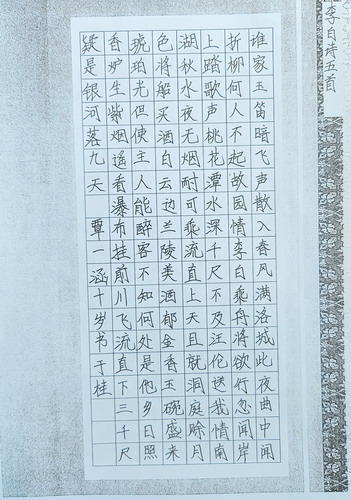 李白诗五首
谁家玉笛暗飞声散入春风满洛城此夜曲中闻
折柳何人不起故园情李白乘舟将欲行忽闻岸
上踏歌声桃花潭水深千尺不及汪伦送我情南
湖秋水夜无烟耐可乘流直上天且就洞庭赊月
色将船买酒白云边兰陵美酒郁金香玉碗盛来
琥珀光但使主人能醉客不知何处是他乡日照
香炉生紫烟遥看瀑布挂前川飞流直下三千尺
疑是银河落九天 覃一涵十岁书于桂